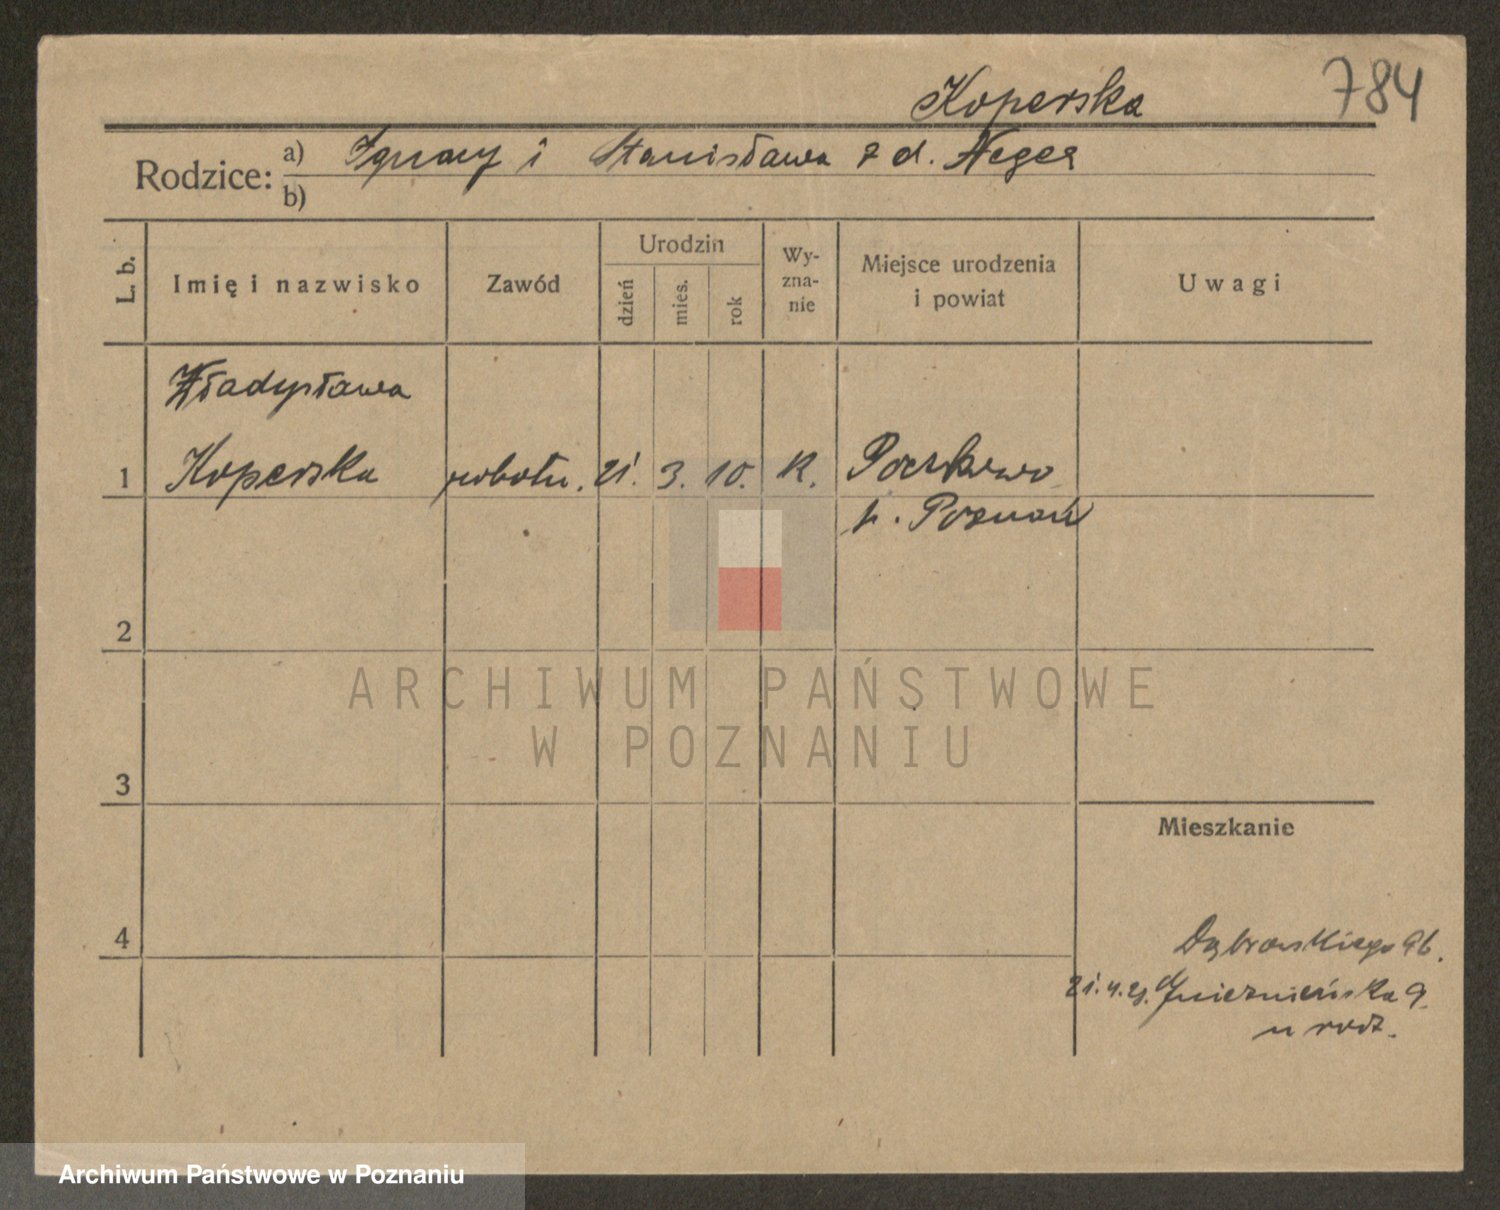 Koperska 784
Rodzice: a) Ignacy i Stanisława z d. Heger
b)
L. b. Imię i nazwisko Zawód Urodzin dzień mies. rok Wy-zna-nie Miejsce urodzenia i powiat Uwagi
Władysława
1 Koperska robotn. 21. 3. 10. K.
p. Poznań
2
ARCHIWUM PAŃSTWOWE
W POZNANIU
3
Mieszkanie
4
Dąbrowskiego 96.
21.4.21. Gnieznieńska 9.
u rodz.
Archiwum Państwowe w Poznaniu